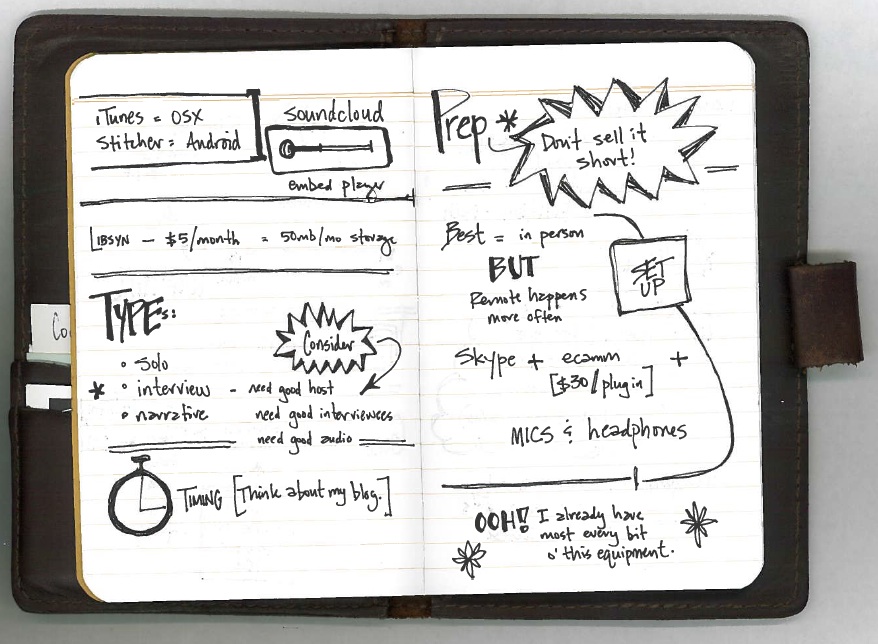 iTunes = OSX
Stitcher = Android
Soundcloud
embed player
LIBSYN - $5/month = 50mb/mo storage
TYPEs:
• solo
* • interview - need good host
• narrative
Consider
need good interviewees
need good audio
TIMING [Think about my blog.]
Prep *
Don't sell it
short!
Best = in person
BUT
Remote happens
more often
SET
UP
Skype + ecamm +
[$30/plugin]
MICS & headphones
OOH!! I already have
most every bit
o' this equipment.
Co